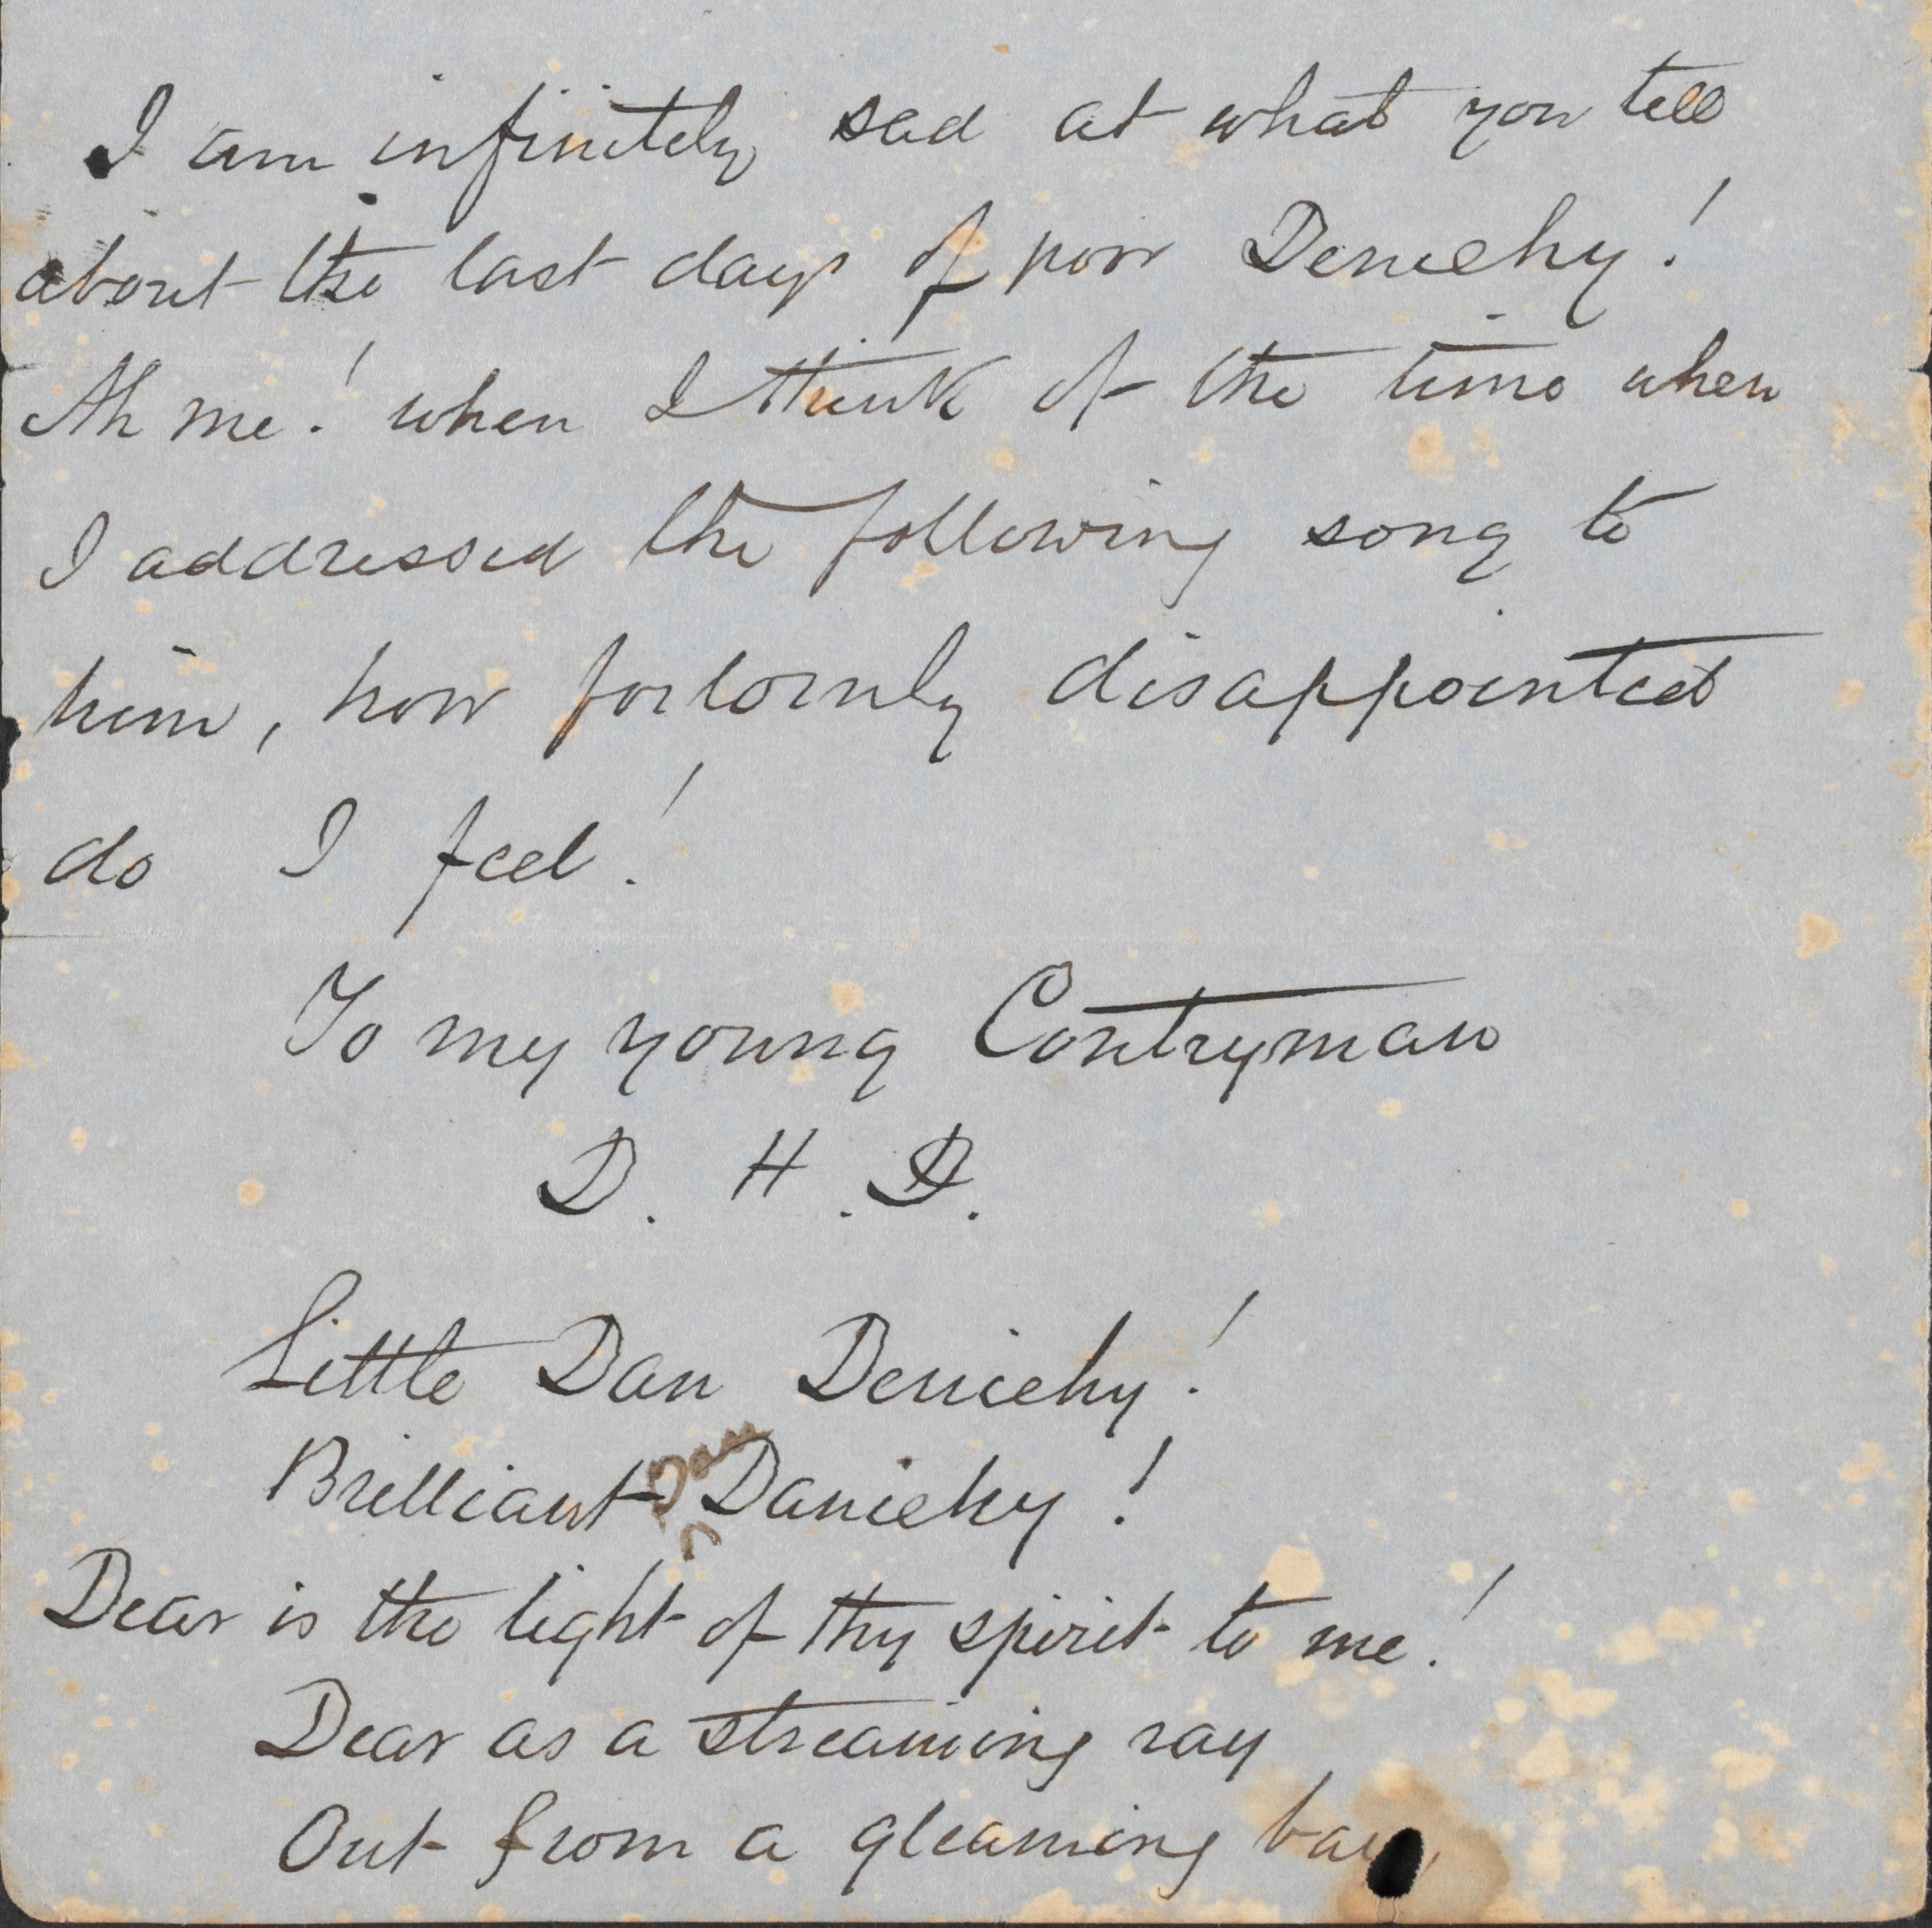 I am infinitely sad at what you tell
about the last days of poor Deniehy!
Ah me! when I think of the time when
I addressed the following song to
him, how forlornly disappointed
do I feel!
To my young Contryman
D. H. D.
Little Dan Deniehy!
Brilliant Dan Daniehy!
Dear is the light of thy spirit to me!
Dear as a streaming ray
Out from a gleaming bay,